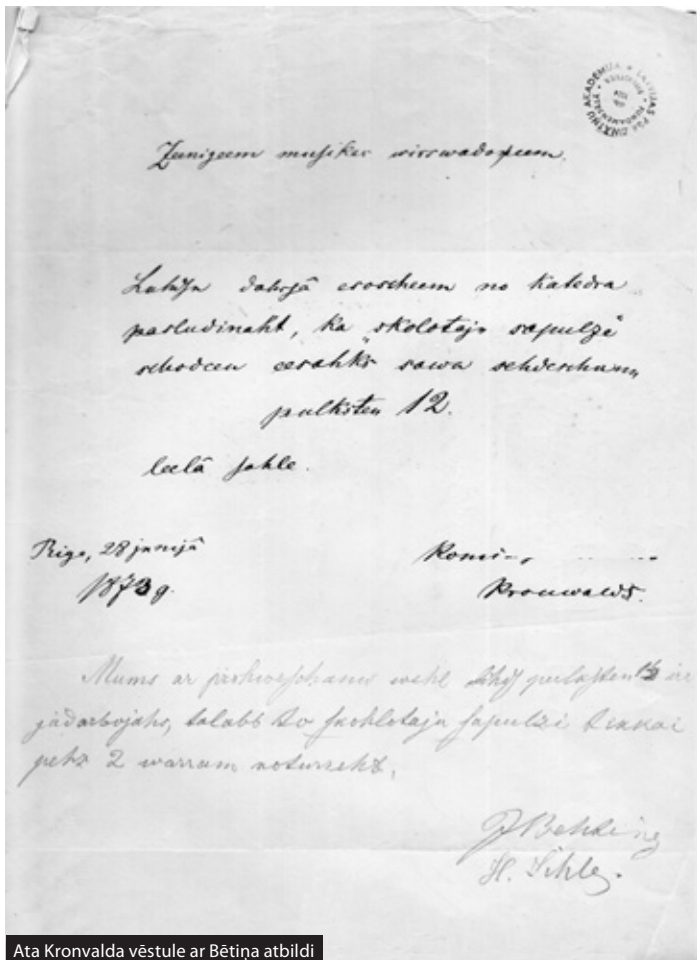 Zeenigeem musikes wirswadoneem.
Luhdsu dahrsâ esoscheem no Katedra
pasludinaht, ka "skolotaju sapulze"
schodeen eesahks sawu sehdeschanu
pulksten 12.
leelâ sahle.
Riga, 28 junijâ
1873 g.
Kronwalds.
Mums ar prohweschanu wehl lihds pulksten 1½ ir
jadarbojahs, talabb to skohlotaju sapulzi tikkai
pehz 2 warram noturreht.
J Behting
H. Sihle.
Ata Kronvalda vēstule ar Bētiņa atbildi